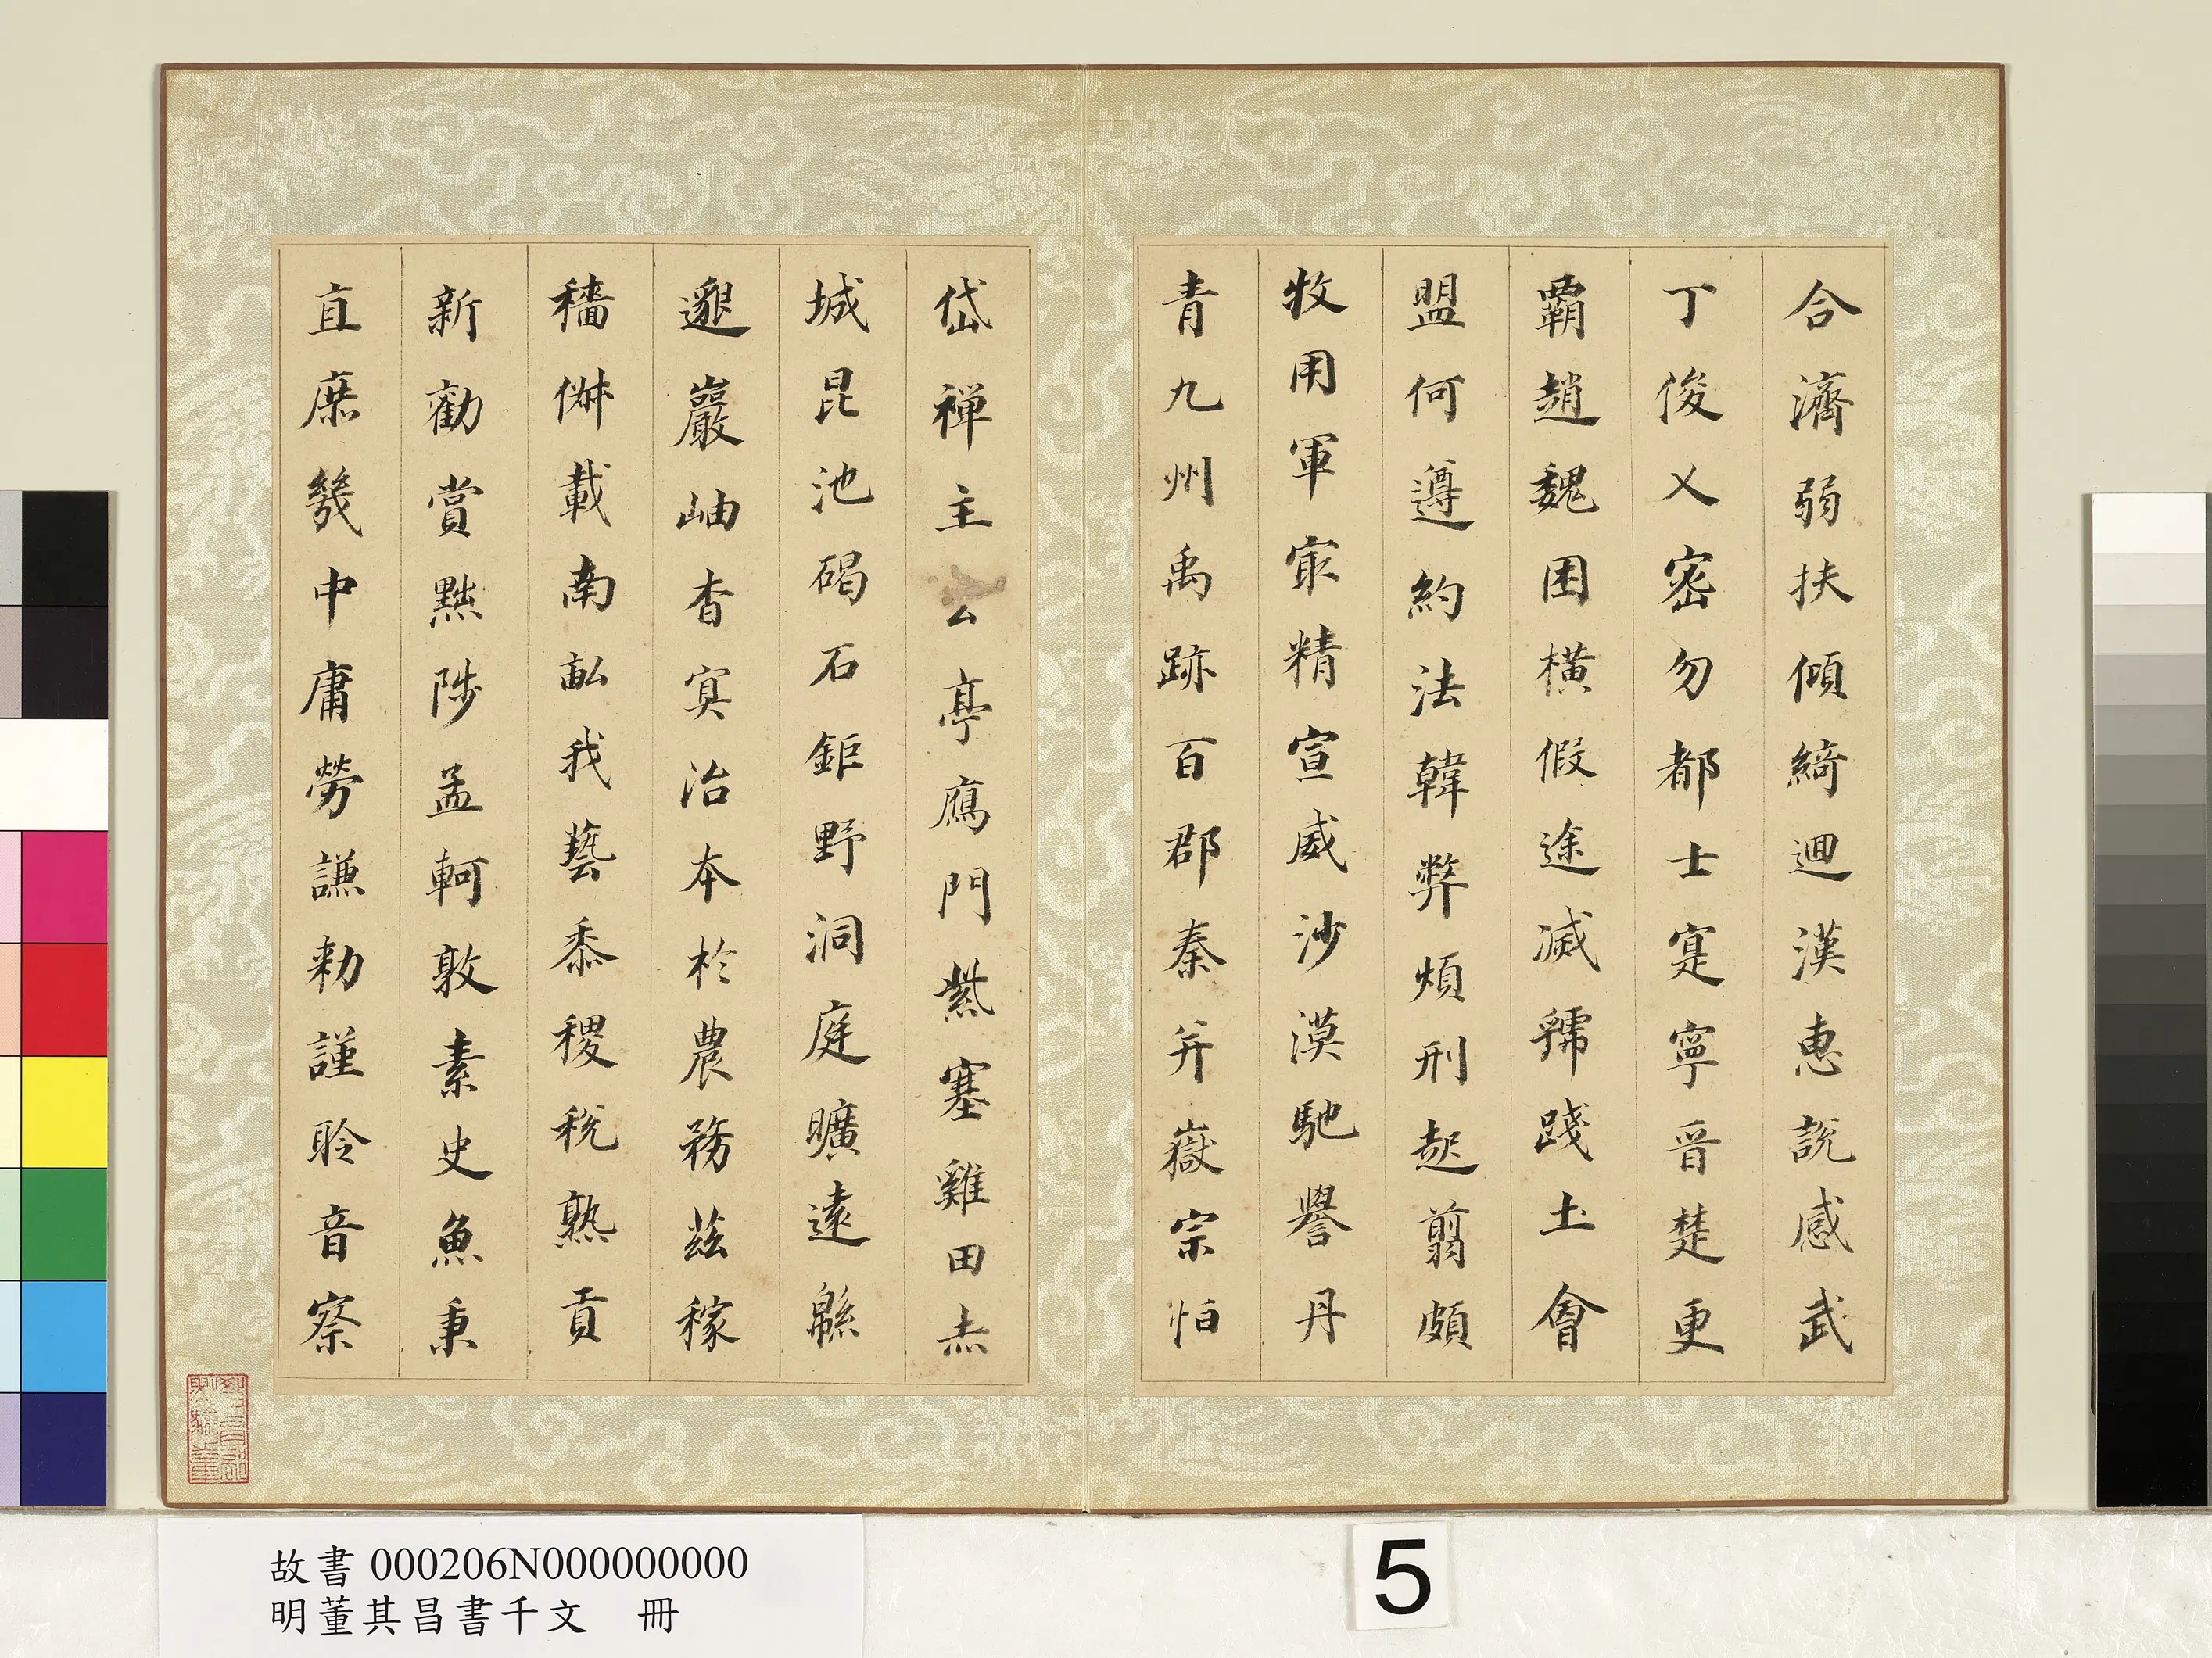 合濟弱扶傾綺迴漢惠說感武
丁俊乂密勿都士寔寧晉楚更
霸趙魏困橫假途滅虢踐土會
盟何遵約法韓弊煩刑起翦頗
牧用軍冣精宣威沙漠馳譽丹
青九州禹跡百郡秦并嶽宗恒
岱禪主云亭鴈門紫塞雞田赤
城昆池碣石鉅野洞庭曠遠緜
邈巖岫杳冥治本於農務茲稼
穡俶載南畝我藝黍稷稅熟貢
新勸賞黜陟孟軻敦素史魚秉
直庶幾中庸勞謙勑謹聆音察
故書 000206N000000000
明董其昌書千文 冊
5